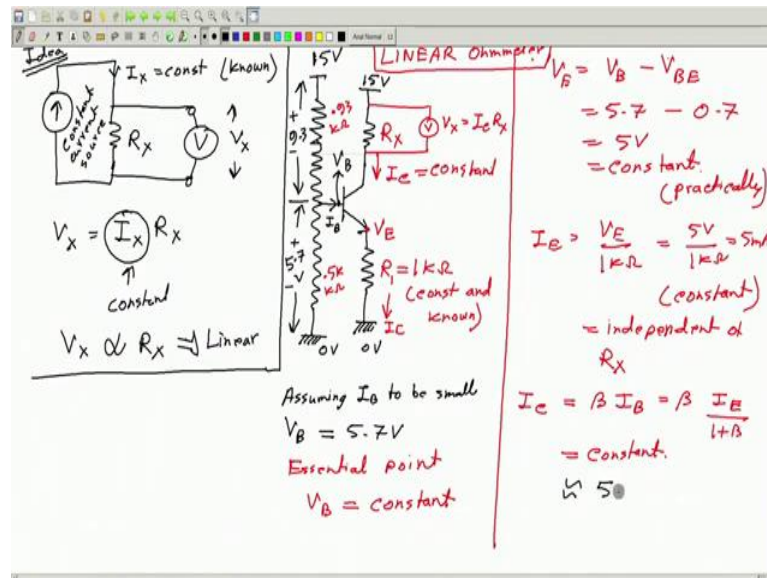 Idea
I_x = const (known)
constant
current
source
R_x
V
V_x
V_x = I_x R_x
constant
V_x ∝ R_x ⇒ Linear
LINEAR Ohmmeter
15V
15V
+
9.3
-
.93
kΩ
R_x
V
V_x = I_c R_x
V_B
I_c = constant
I_B
V_E
+
5.7
V
-
.5k
kΩ
R_1 = 1kΩ
(const and
known)
I_C
0V
0V
Assuming I_B to be small
V_B = 5.7V
Essential point
V_B = constant
V_E = V_B - V_BE
= 5.7 - 0.7
= 5V
= constant.
(practically)
I_E = V_E / 1kΩ = 5V / 1kΩ = 5m
(constant)
= independent of
R_x
I_c = β I_B = β I_E / 1+β
= constant.
≈ 5